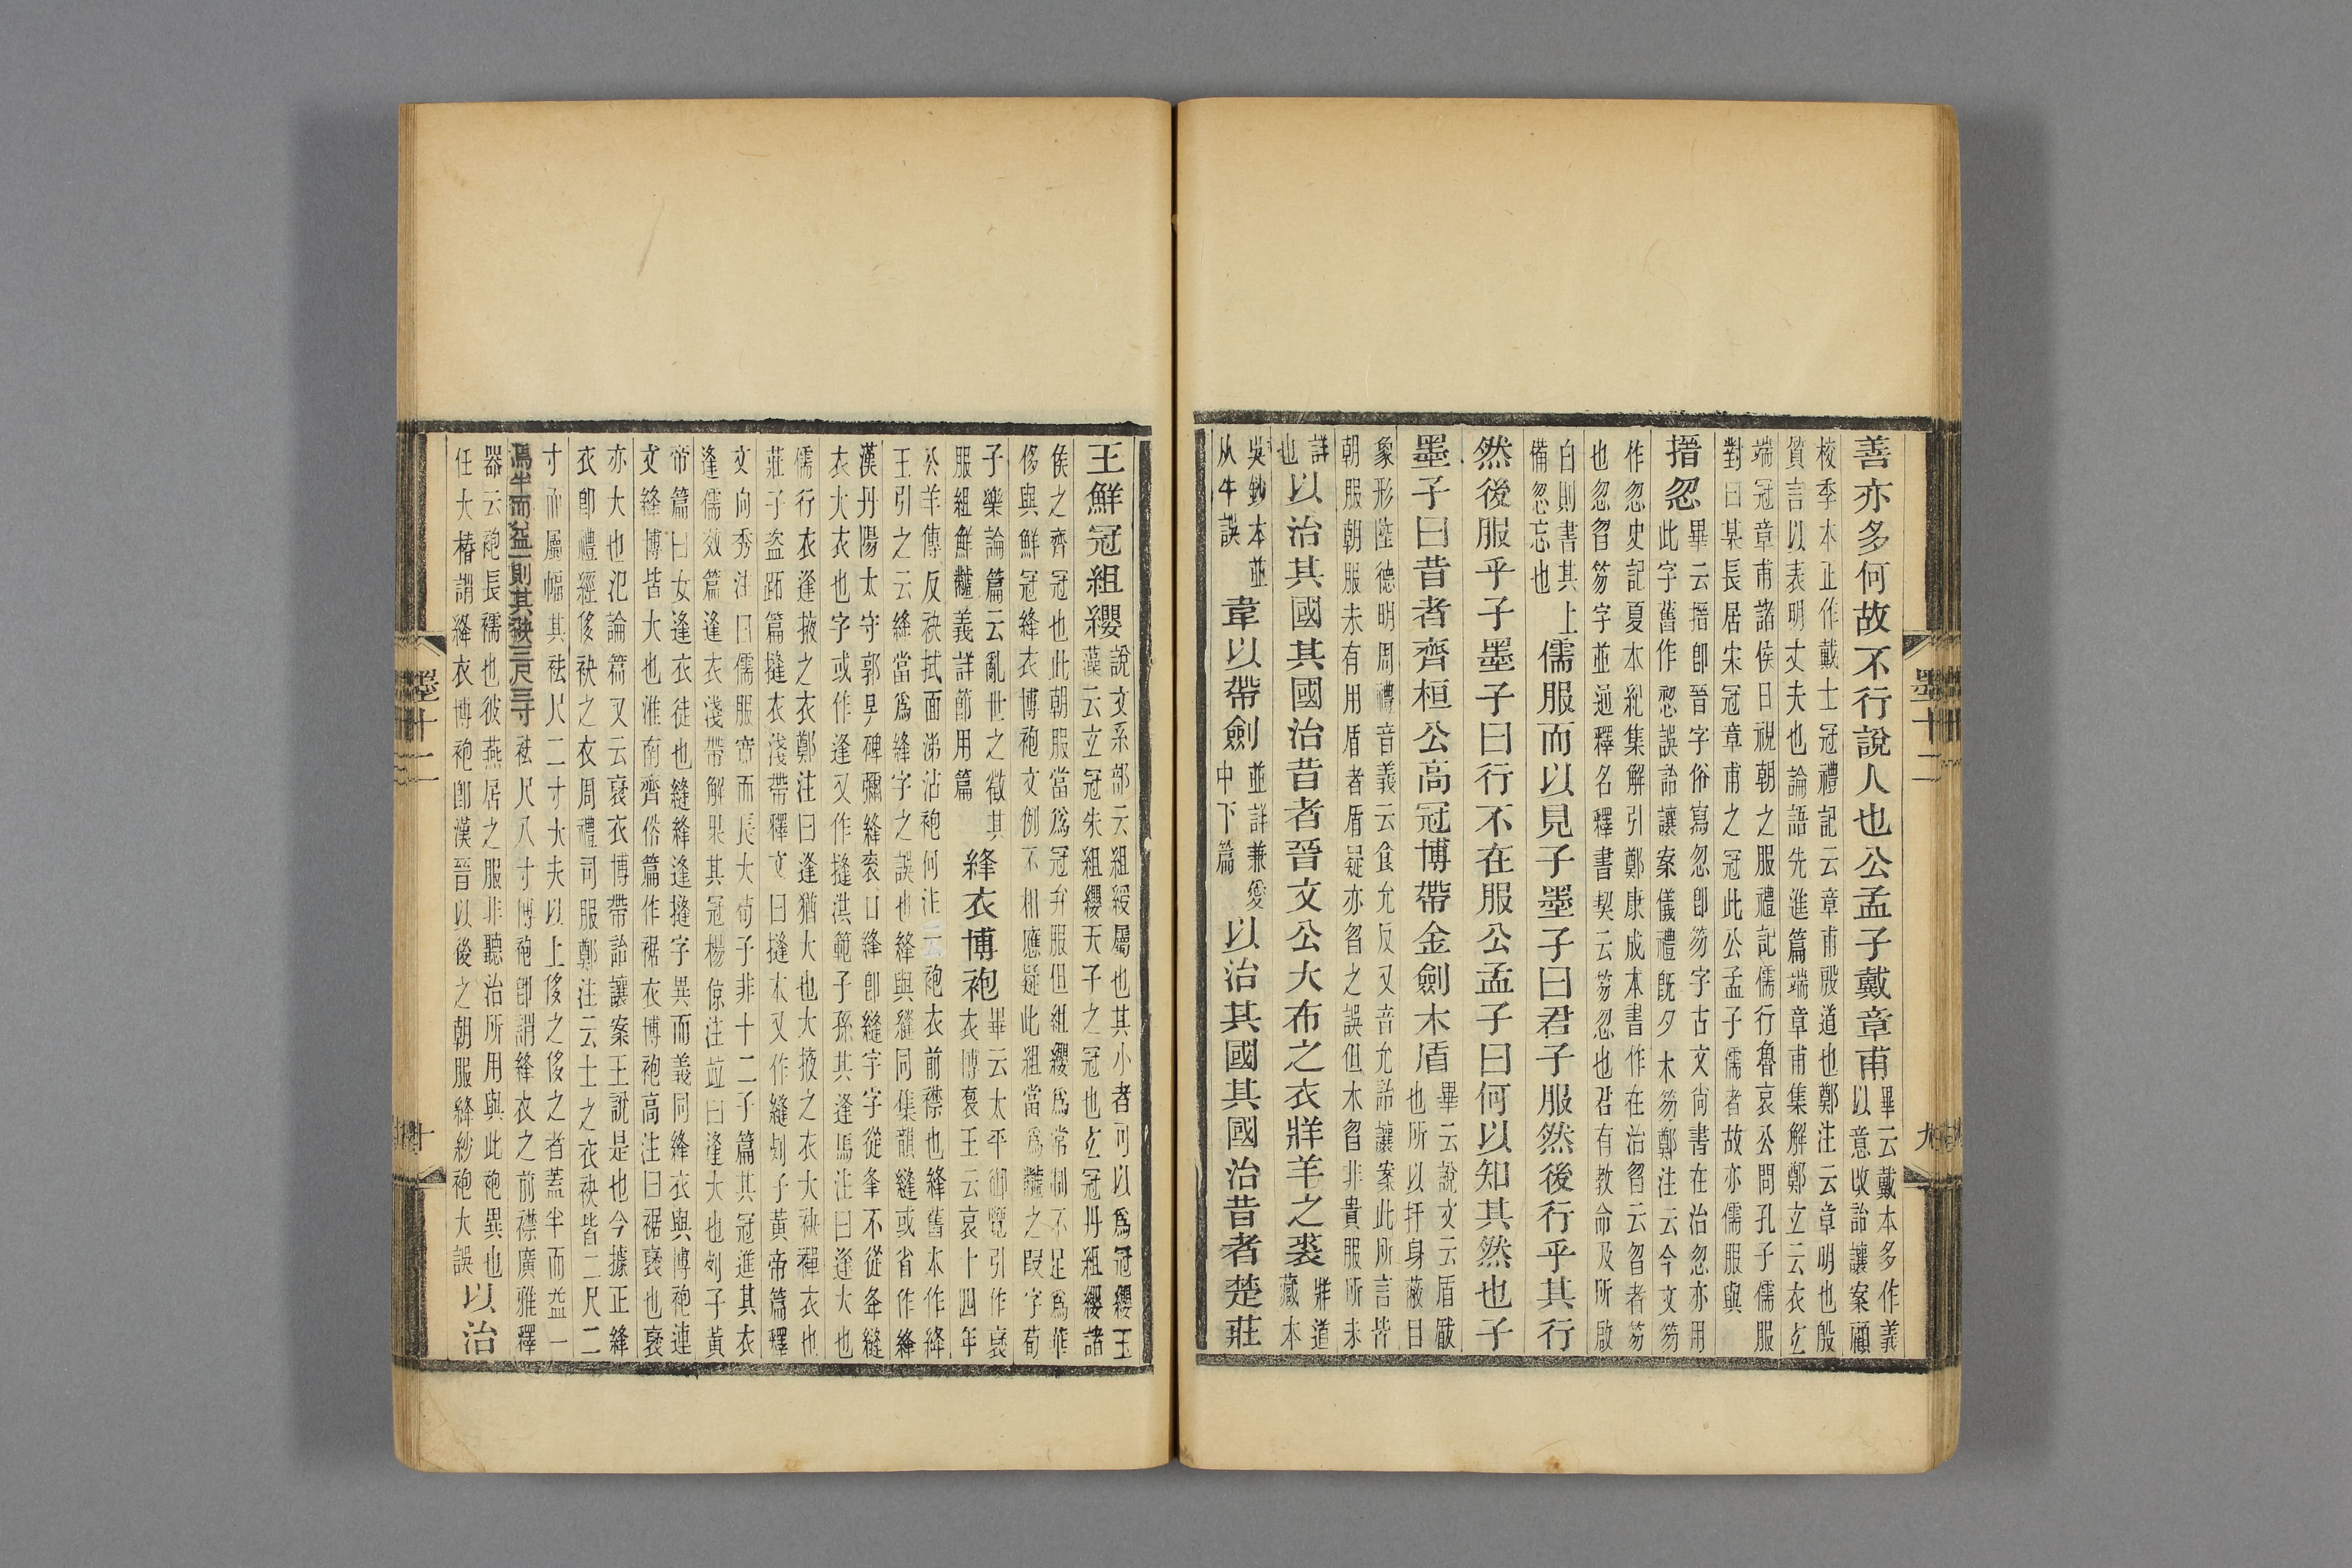 善亦多何故不行說人也公孟子戴章甫畢云戴本多作義以意改詒讓案顧
校季本正作戴士冠禮記云章甫殷道也鄭注云章明也殷
質言以表明丈夫也論語先進篇端章甫集解鄭玄云衣玄
端冠章甫諸侯日視朝之服禮記儒行魯哀公問孔子儒服
對曰某長居宋冠章甫之冠此公孟子儒者故亦儒服與
搢忽畢云搢即晉字俗寫忽即笏字古文尚書在治忽亦用此字舊作惚誤詒讓案儀禮既夕木笏鄭注云今文笏
作忽史記夏本紀集解引鄭康成本書作在治曶云曶者笏
也忽曶笏字並通釋名釋書契云笏忽也君有教命及所啟
白則書其上備忽忘也儒服而以見子墨子曰君子服然後行乎其行
然後服乎子墨子曰行不在服公孟子曰何以知其然也子
墨子曰昔者齊桓公高冠博帶金劍木盾畢云說文云盾瞂也所以扞身蔽目
象形陸德明周禮音義云食允反又音允詒讓案此所言皆
朝服朝服未有用盾者盾疑亦曶之誤但木曶非貴服所未
詳也以治其國其國治昔者晉文公大布之衣牂羊之裘牂道藏本
吳鈔本並从牛誤韋以帶劍並詳兼愛中下篇以治其國其國治昔者楚莊
墨十二
九
王鮮冠組纓說文系部云組綬屬也其小者可以爲冠纓玉藻云玄冠朱組纓天子之冠也玄冠丹組纓諸
侯之齊冠也此朝服當爲冠弁服但組纓爲常制不足爲華
侈與鮮冠絳衣博袍文例不相應疑此組當爲黼之叚字荀
子樂論篇云亂世之徵其服組鮮黼義詳節用篇絳衣博袍畢云太平御覽引作裒衣博褒王云哀十四年
公羊傳反袂拭面涕沾袍何注云袍衣前襟也絳舊本作絳
王引之云絳當爲絳字之誤也絳與縫同集韻縫或省作絳
漢丹陽太守郭旻碑彌絳袞口絳即縫字字從夆不從夅縫
衣大衣也字或作逢又作摓洪範子孫其逢馬注曰逢大也
儒行衣逢掖之衣鄭注曰逢猶大也大掖之衣大袂襌衣也
莊子盜跖篇摓衣淺帶釋文曰摓本又作縫列子黃帝篇釋
文向秀注曰儒服寬而長大荀子非十二子篇其冠進其衣
逢儒效篇逢衣淺帶解果其冠楊倞注並曰逢大也列子黃
帝篇曰女逢衣徒也縫絳逢摓字異而義同絳衣與博袍連
文絳博皆大也淮南齊俗篇作裾衣博袍高注曰裾裒也裒
亦大也氾論篇又云裒衣博帶詒讓案王說是也今據正絳
衣即禮經侈袂之衣周禮司服鄭注云士之衣袂皆二尺二
寸而屬幅其袪尺二寸大夫以上侈之侈之者蓋半而益一
焉半而益一則其袂三尺三寸袪尺八寸博袍即謂絳衣之前襟廣雅釋
器云袍長襦也彼燕居之服非聽治所用與此袍異也
任大椿謂絳衣博袍即漢晉以後之朝服絳紗袍大誤以治
墨十二
十